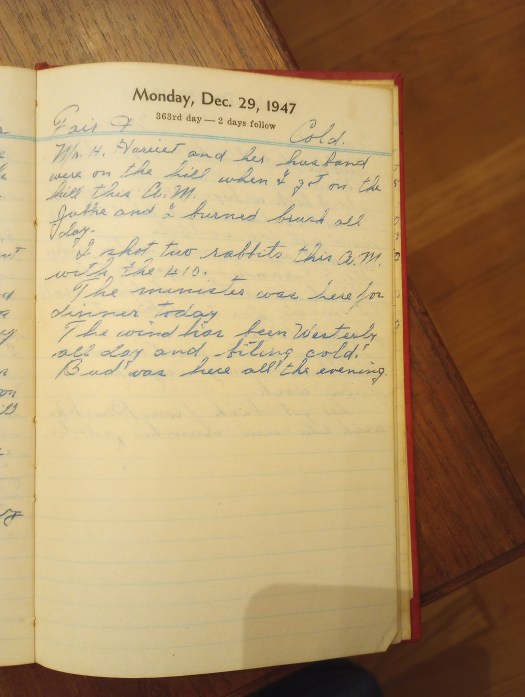 Monday, Dec. 29, 1947
363rd day — 2 days follow
Fair & Cold.
H. Harriet and her husband
were on the hill when I got on the
hill this A.M.
and I burned brush all
day.
I shot two rabbits this A.M.
with the 410.
The minister was here for
dinner today
The wind has been Westerly
all day and "biting cold."
"Bud" was here all the evening.